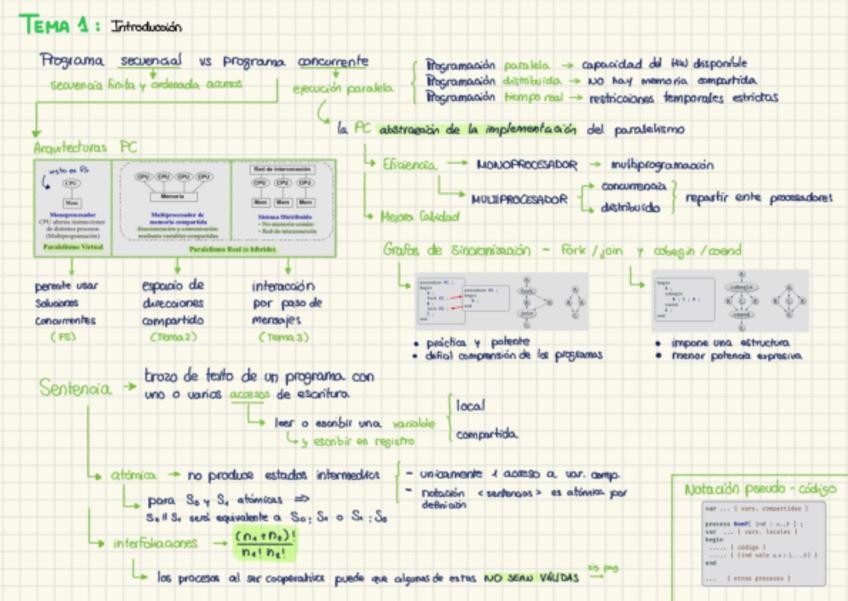 TEMA 1: Introducción
Programa secuencial vs programa concurrente
secuencia finita y ordenada acciones
ejecución paralela
Programación paralela → capacidad del HW disponible
Programación distribuida → no hay memoria compartida
Programación tiempo real → restricciones temporales estrictas
la PC abstracción de la implementación del paralelismo
Arquitecturas PC
visto en FS
CPU
Mem
Monoprocesador
CPU alterna instrucciones
de distintos procesos
(Multiprogramación)
Paralelismo Virtual
CPU CPU CPU CPU
Memoria
Multiprocesador de
memoria compartida
Sincronización y comunicación
mediante variables compartidas
Red de interconexión
CPU CPU CPU
Mem Mem Mem
Sistema Distribuido
• No memoria común
• Red de interconexión
Paralelismo Real (o híbrido)
permite usar
soluciones
concurrentes
(FS)
espacio de
direcciones
compartido
(Tema 2)
interacción
por paso de
mensajes
(Tema 3)
Eficiencia → MONOPROCESADOR → multiprogramación
MULTIPROCESADOR
concurrencia
distribuido
repartir entre procesadores
Mejora Calidad
Grafos de Sincronización - Fork / join y cobegin / coend
• práctica y potente
• difícil comprensión de los programas
• impone una estructura
• menor potencia expresiva
Sentencia → trozo de texto de un programa con
uno o varios accesos de escritura.
leer o escribir una variable
y escribir en registro
local
compartida
atómica → no produce estados intermedios
- unicamente 1 acceso a var. comp.
- notación <sentencias> es atómica por
definición
para S₀ y S₁ atómicas ⇒
S₀ || S₁ será equivalente a S₀; S₁ o S₁; S₀
interfoliaciones → (n₁ + n₂)! / n₁! n₂!
los procesos al ser cooperativos puede que algunas de estas NO SEAN VÁLIDAS
sig pag.
Notación pseudo-código
var ... { vars. compartidas }
var ... { vars. locales }
begin
..... { código }
end
... { otros procesos }